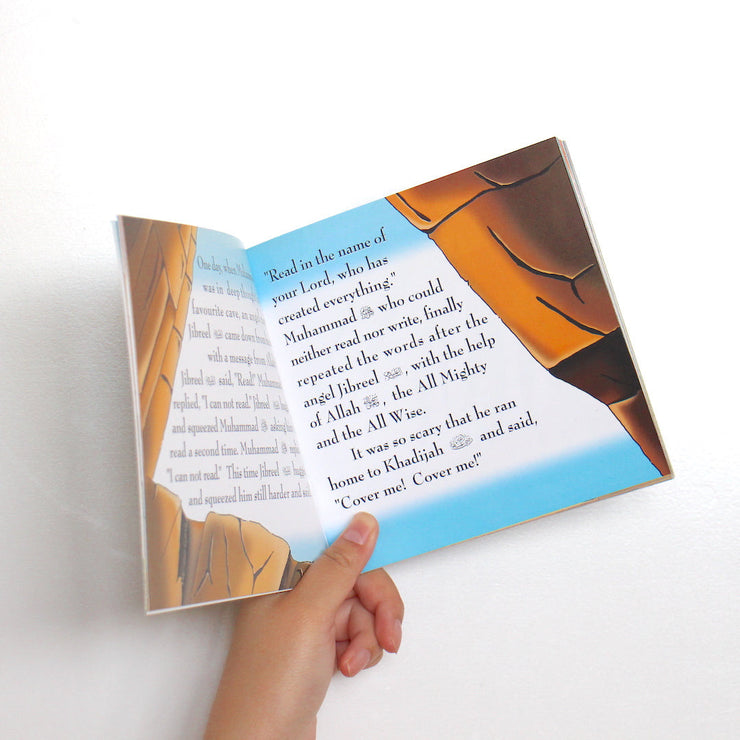 One day, when
was in deep
favourite cave, an
Jibreel ﷺ came down from
with a message from
Jibreel ﷺ said, "Read!"
replied, "I can not read." Jibreel
and squeezed Muhammad ﷺ asking
read a second time. Muhammad ﷺ
"I can not read." This time Jibreel
and squeezed him still harder and
"Read in the name of
your Lord, who has
created everything."
Muhammad ﷺ who could
neither read nor write, finally
repeated the words after the
angel Jibreel, with the help
of Allah, the All Mighty
and the All Wise.
It was so scary that he ran
home to Khadijah and said,
"Cover me! Cover me!"